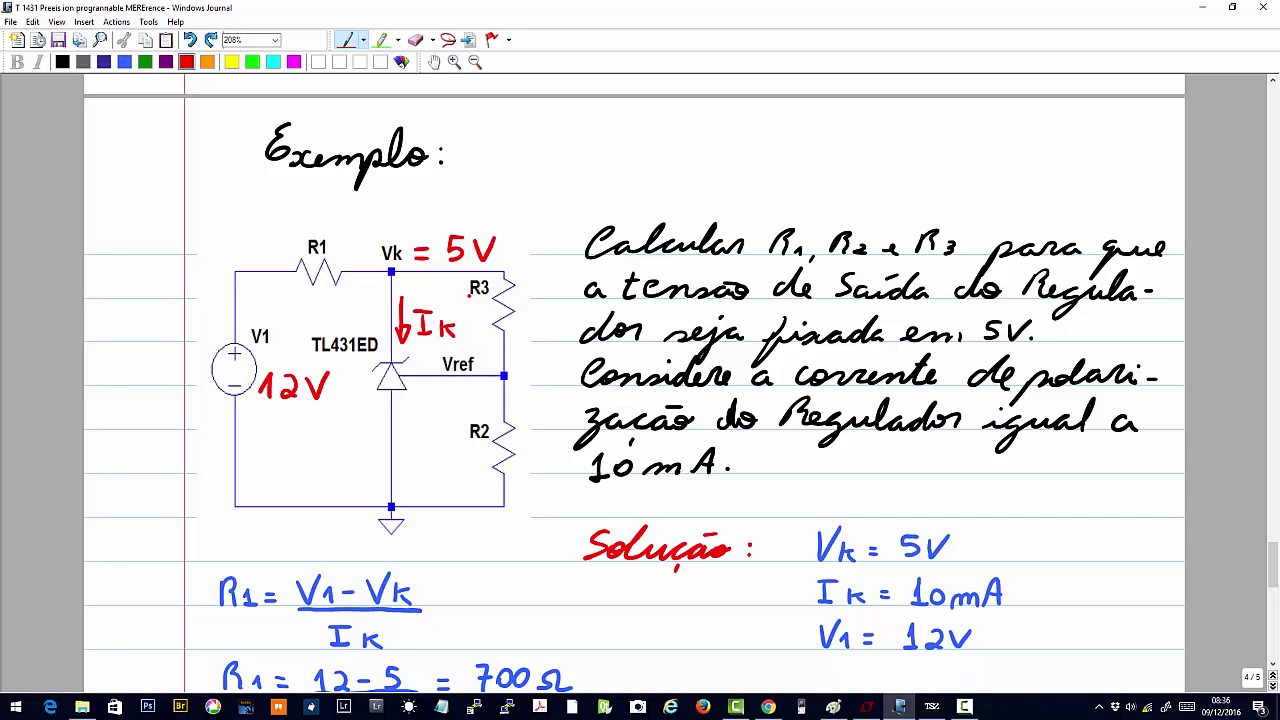 T 1431 Preeis ion progrannable MERErence - Windows Journal
File Edit View Insert Actions Tools Help
208%
B I
Exemplo:
R1
Vk = 5V
R3
IK
V1
TL431ED
Vref
12V
R2
Calcular R1, R2 e R3 para que
a tensão de Saída do Regula-
dor seja fixada em 5V.
Considere a corrente de polari-
zação do Regulador igual a
10mA.
Solução:
VK = 5V
IK = 10mA
V1 = 12V
R1 = V1 - VK
IK
R1 = 12 - 5 = 700Ω
4 / 5
08:36
09/12/2016